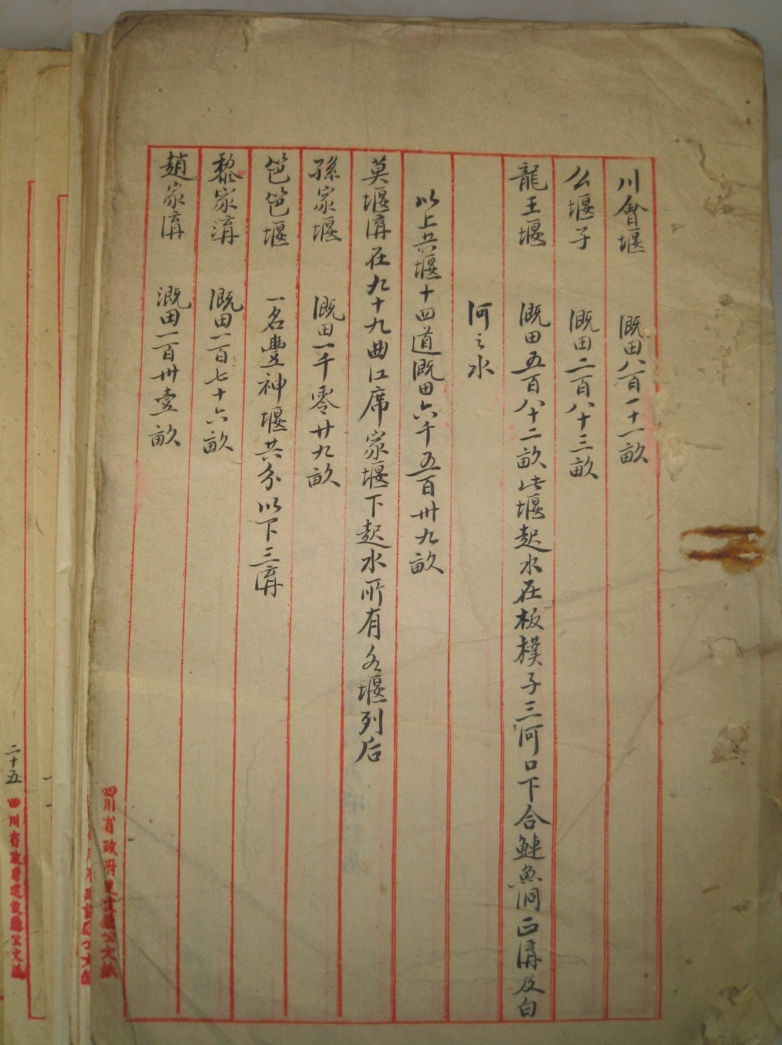 川會堰 溉田八百一十一畝
公堰子 溉田二百八十三畝
龍王堰 溉田五百八十二畝此堰起水在板樸子三河口下合鰱魚洞正溝及白
河之水
以上共堰十四道溉田六千五百卅九畝
莫堰溝在九十九曲江席家堰下起水所有各堰列后
孫家堰 溉田一千零廿九畝
笆笆堰 一名豐神堰共分以下三溝
黎家溝 溉田一百七十六畝
趙家溝 溉田一百卅壹畝
四川省政府建設廳公文紙
二十五
四川省政府建設廳公文紙